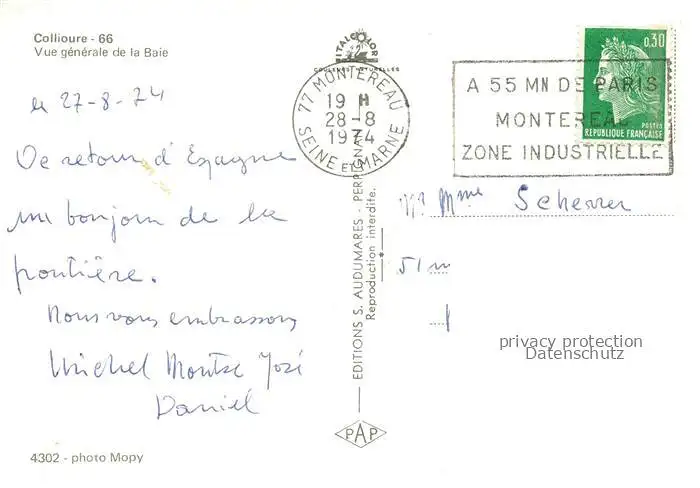 Collioure - 66
Vue générale de la Baie
le 27-8-74
De retour d'Espagne
un bonjour de la
frontière.
Nous vous embrassons
Michel Montse José
Daniel
4302 - photo Mopy
ITALCOLOR
COULEURS NATURELLES
77 MONTEREAU
19 H
28-8
1974
SEINE ET MARNE
EDITIONS S. AUDUMARES - PERPIGNAN
Reproduction interdite.
PAP
0,30
POSTES
REPUBLIQUE FRANÇAISE
A 55 MN DE PARIS
MONTEREAU
ZONE INDUSTRIELLE
Mr Mme Scherrer
51
privacy protection
Datenschutz